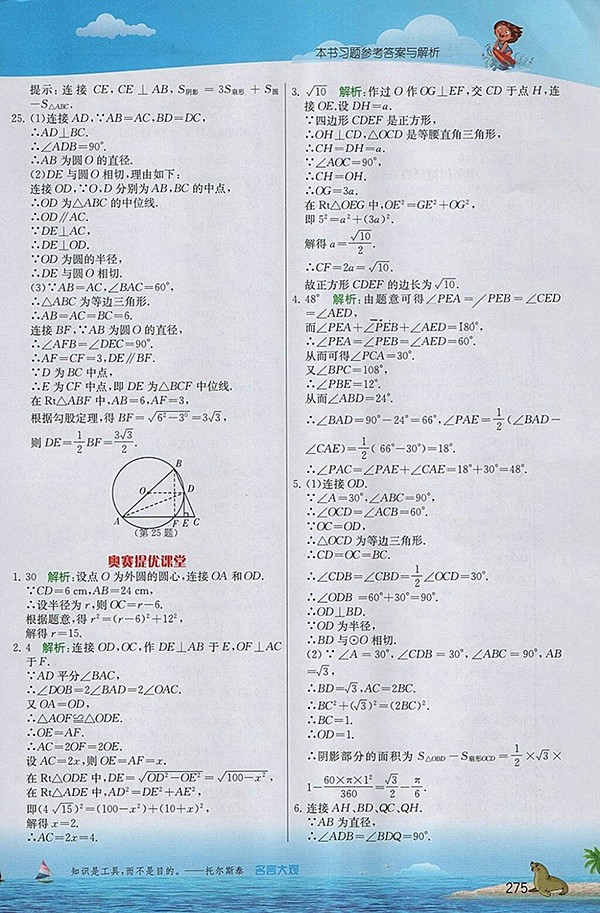 本书习题参考答案与解析
提示:连接 CE,CE⊥AB,S阴影=3S扇形+S圆
-S△ABC.
25. (1)连接AD,∵AB=AC,BD=DC,
∴AD⊥BC.
∴∠ADB=90°.
∴AB为圆O的直径.
(2)DE与圆O相切,理由如下:
连接OD,∵O,D分别为AB,BC的中点,
∴OD为△ABC的中位线.
∴OD∥AC.
∵DE⊥AC,
∴DE⊥OD.
∵OD为圆的半径,
∴DE与圆O相切.
(3)∵AB=AC,∠BAC=60°,
∴△ABC为等边三角形.
∴AB=AC=BC=6.
连接BF,∵AB为圆O的直径,
∴∠AFB=∠DEC=90°.
∴AF=CF=3,DE∥BF.
∵D为BC中点,
∴E为CF中点,即DE为△BCF中位线.
在Rt△ABF中,AB=6,AF=3,
根据勾股定理,得BF=√(6²-3²)=3√3,
则DE=1/2BF=3√3/2.
B
O
D
A
F E C
(第25题)
奥赛提优课堂
1. 30 解析:设点O为外圆的圆心,连接OA和OD.
∵CD=6 cm,AB=24 cm,
∴设半径为r,则OC=r-6.
根据题意,得r²=(r-6)²+12²,
解得r=15.
2. 4 解析:连接OD,OC,作DE⊥AB于E,OF⊥AC
于F.
∵AD平分∠BAC,
∴∠DOB=2∠BAD=2∠OAC.
又OA=OD,
∴△AOF≌△ODE.
∴OE=AF.
∴AC=2OF=2OE.
设AC=2x,则OE=AF=x.
在Rt△ODE中,DE=√(OD²-OE²)=√(100-x²),
在Rt△ADE中,AD²=DE²+AE²,
即(4√15)²=(100-x²)+(10+x)²,
解得x=2.
∴AC=2x=4.
3. √10 解析:作过O作OG⊥EF,交CD于点H,连
接OE.设DH=a.
∵四边形CDEF是正方形,
∴OH⊥CD,△OCD是等腰直角三角形,
∴CH=DH=a.
∵∠AOC=90°,
∴CH=OH.
∴OG=3a.
在Rt△OEG中,OE²=GE²+OG²,
即5²=a²+(3a)².
解得a=√10/2.
∴CF=2a=√10.
故正方形CDEF的边长为√10.
4. 48° 解析:由题意可得∠PEA=∠PEB=∠CED
=∠AED,
而∠PEA+∠PEB+∠AED=180°,
∴∠PEA=∠PEB=∠AED=60°.
从而可得∠PCA=30°.
又∠BPC=108°,
∴∠PBE=12°.
从而∠ABD=24°.
∴∠BAD=90°-24°=66°,∠PAE=1/2(∠BAD-
∠CAE)=1/2(66°-30°)=18°.
∴∠PAC=∠PAE+∠CAE=18°+30°=48°.
5. (1)连接OD.
∵∠A=30°,∠ABC=90°,
∴∠OCD=∠ACB=60°.
∵OC=OD,
∴△OCD为等边三角形.
∴CD=OC=BC.
∴∠CDB=∠CBD=1/2∠OCD=30°.
∴∠ODB=60°+30°=90°.
∴OD⊥BD.
∵OD为半径,
∴BD与⊙O相切.
(2)∵∠A=30°,∠CDB=30°,∠ABC=90°,AB
=√3,
∴BD=√3,AC=2BC.
∴BC²+(√3)²=(2BC)².
∴BC=1.
∴OD=1.
∴阴影部分的面积为S△OBD-S扇形OCD=1/2×√3×
1-60×π×1²/360=√3/2-π/6.
6. 连接AH、BD、QC、QH.
∵AB为直径,
∴∠ADB=∠BDQ=90°.
知识是工具,而不是目的。——托尔斯泰 名言大观
275